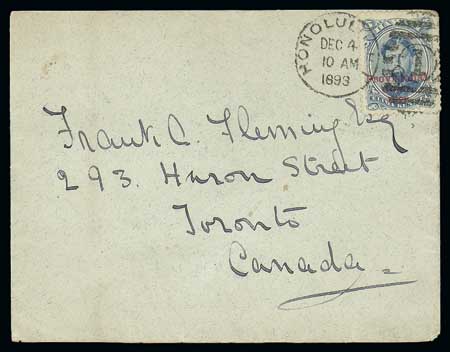 HONOLULU
DEC 4
10 AM
1893
Frank C. Fleming Esq
293. Huron Street
Toronto
Canada